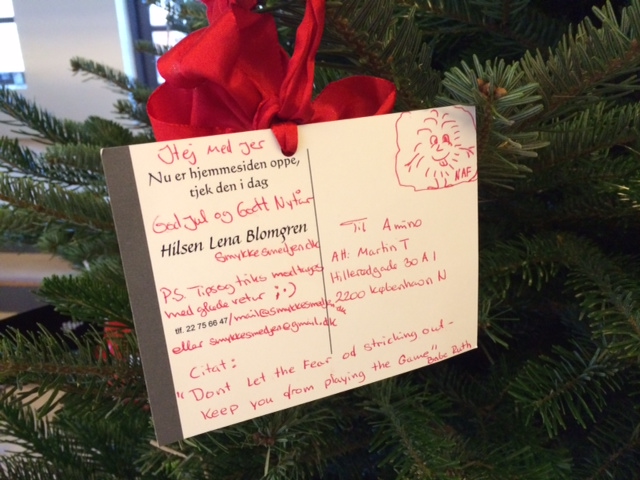 Hej med jer
Nu er hjemmesiden oppe,
tjek den i dag
God jul og Godt Nytår
Hilsen Lena Blomgren
Smykkesmedjen.dk
P.S. Tips og triks modtages
med glade retur ;:-)
tlf. 22 75 66 47/mail@smykkesmedjen.dk
eller smykkesmedjen@gmail.dk
Citat:
"Dont Let the Fear od stricking out -
Keep you from playing the Game"
Babe Ruth
NAF
Til Amino
Att: Martin T
Hillerødgade 30 A 1
2200 København N